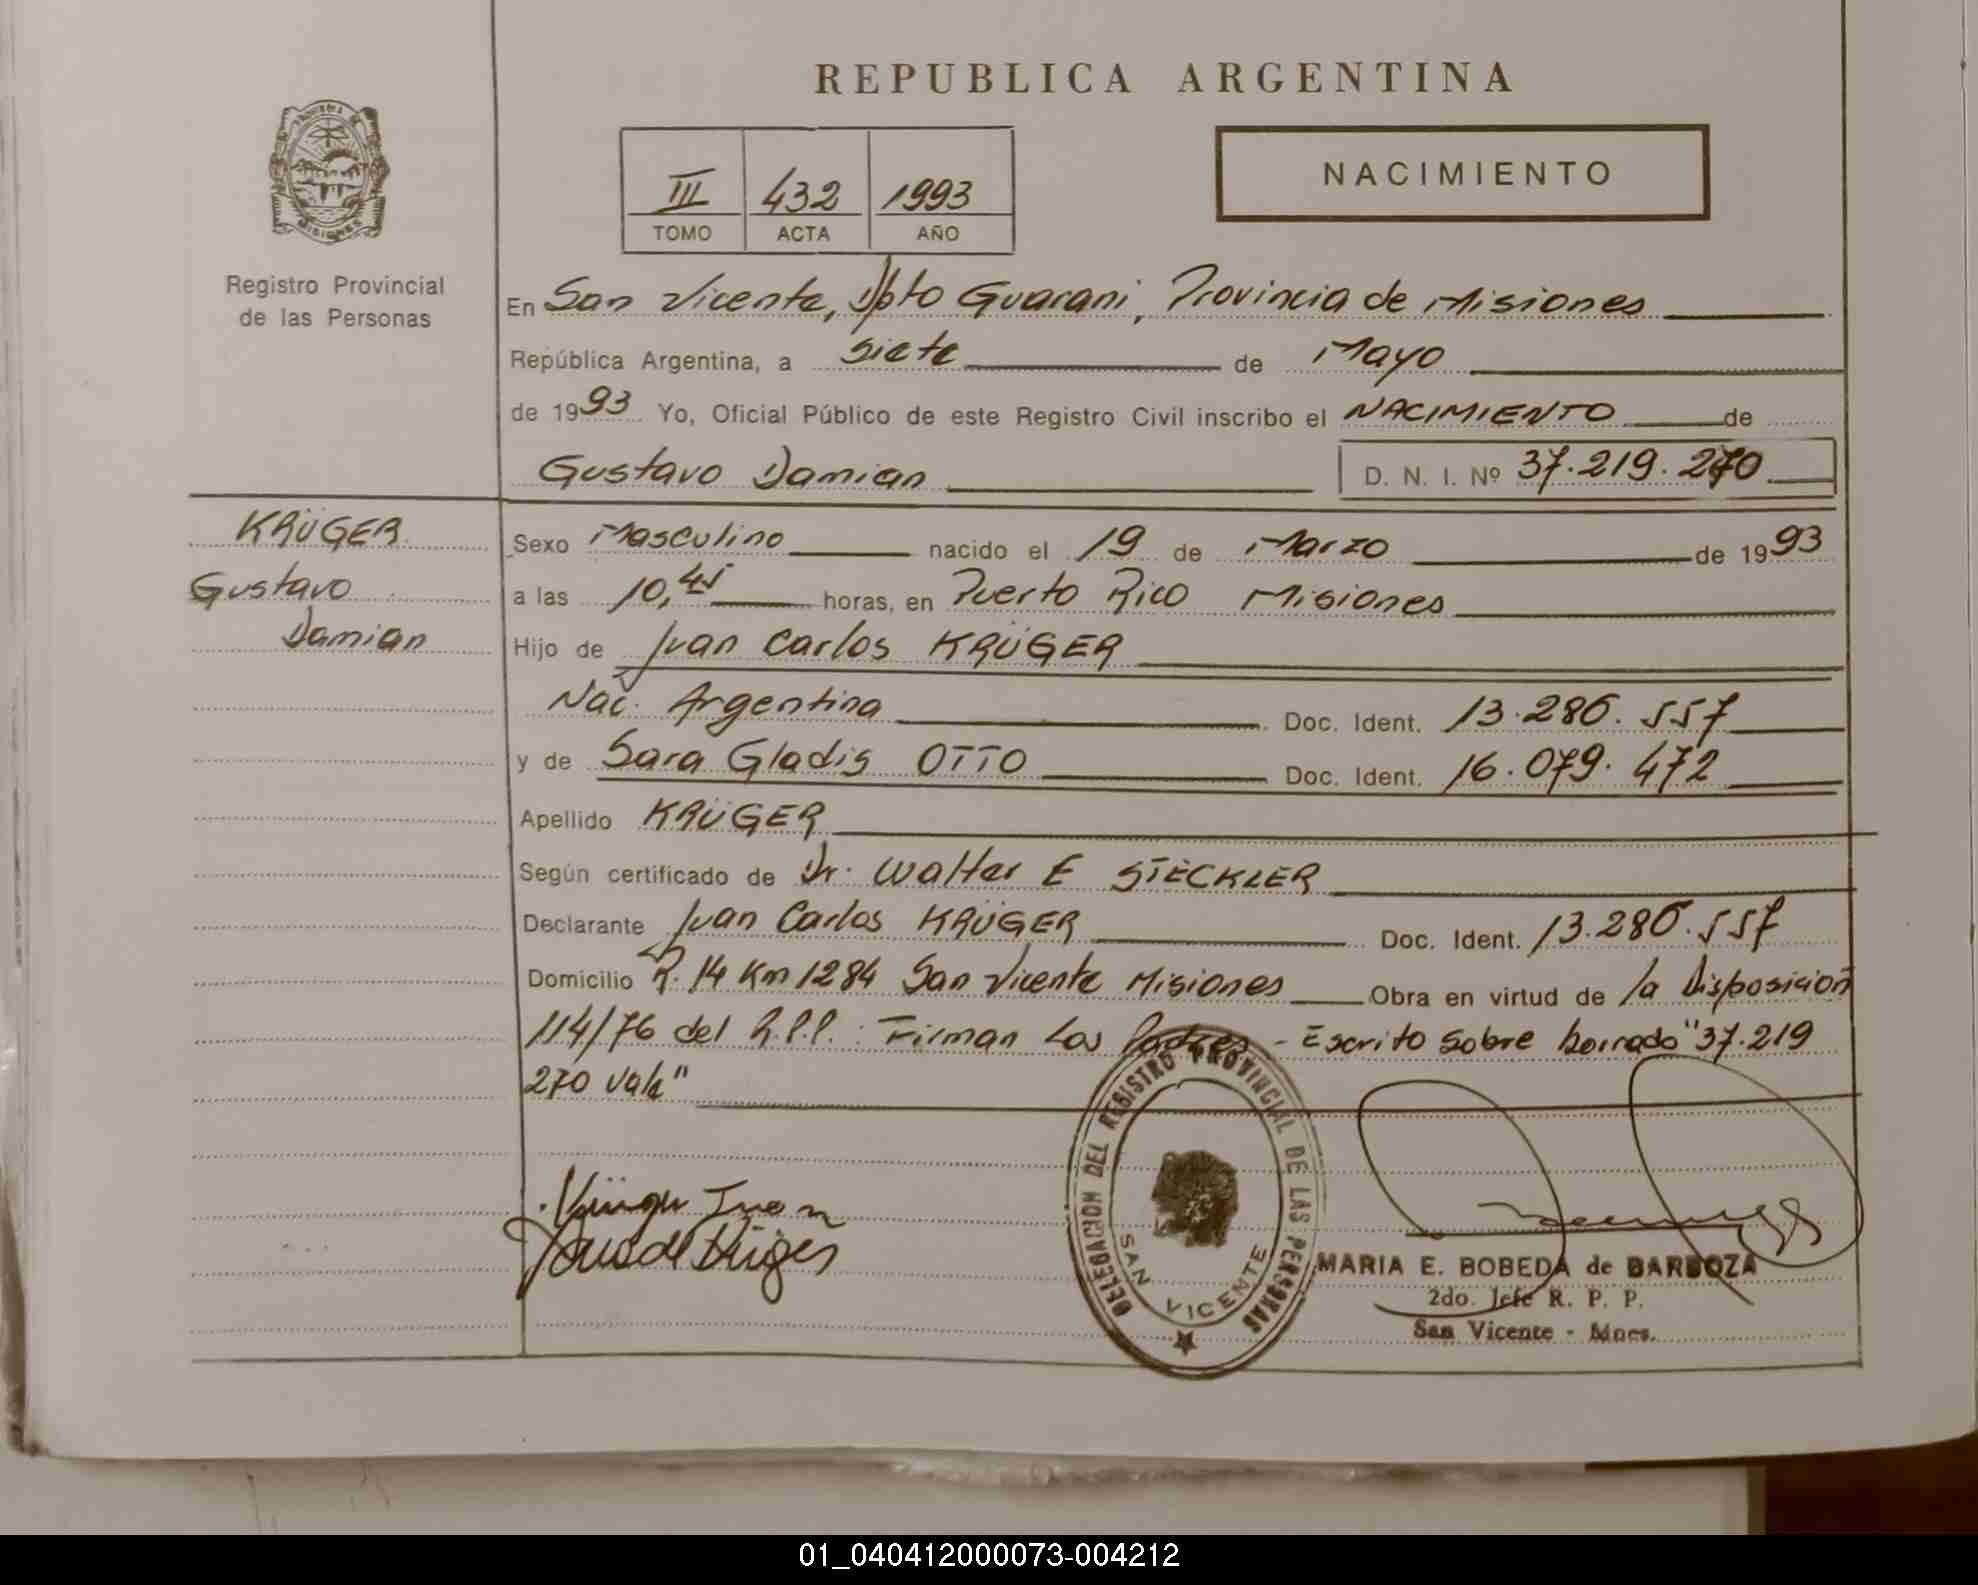 REPUBLICA ARGENTINA
NACIMIENTO
III 432 1993
TOMO ACTA AÑO
MISIONES
Registro Provincial
de las Personas
En San Vicente, Dpto Guarani, Provincia de Misiones
República Argentina, a siete de Mayo
de 1993 Yo, Oficial Público de este Registro Civil inscribo el NACIMIENTO de
Gustavo Damian D. N. I. Nº 37.219.270
KRÜGER
Gustavo
Damian
Sexo Masculino nacido el 19 de Marzo de 1993
a las 10,45 horas, en Puerto Rico Misiones
Hijo de Juan Carlos KRÜGER
Nac. Argentina Doc. Ident. 13.286.557
y de Sara Gladis OTTO Doc. Ident. 16.079.472
Apellido KRÜGER
Según certificado de Dr. Walter E STECKLER
Declarante Juan Carlos KRÜGER Doc. Ident. 13.286.557
Domicilio R. 14 Km 1284 San Vicente Misiones Obra en virtud de la Disposición
114/76 del R.P.P. : Firman Los Padres - Escrito sobre borrado "37.219
270 vale"
Krüger Juan
DELEGACION DEL REGISTRO PROVINCIAL DE LAS PERSONAS
SAN VICENTE
MARIA E. BOBEDA de BARBOZA
2do. Jefe R. P. P.
San Vicente - Mnes.
01_040412000073-004212